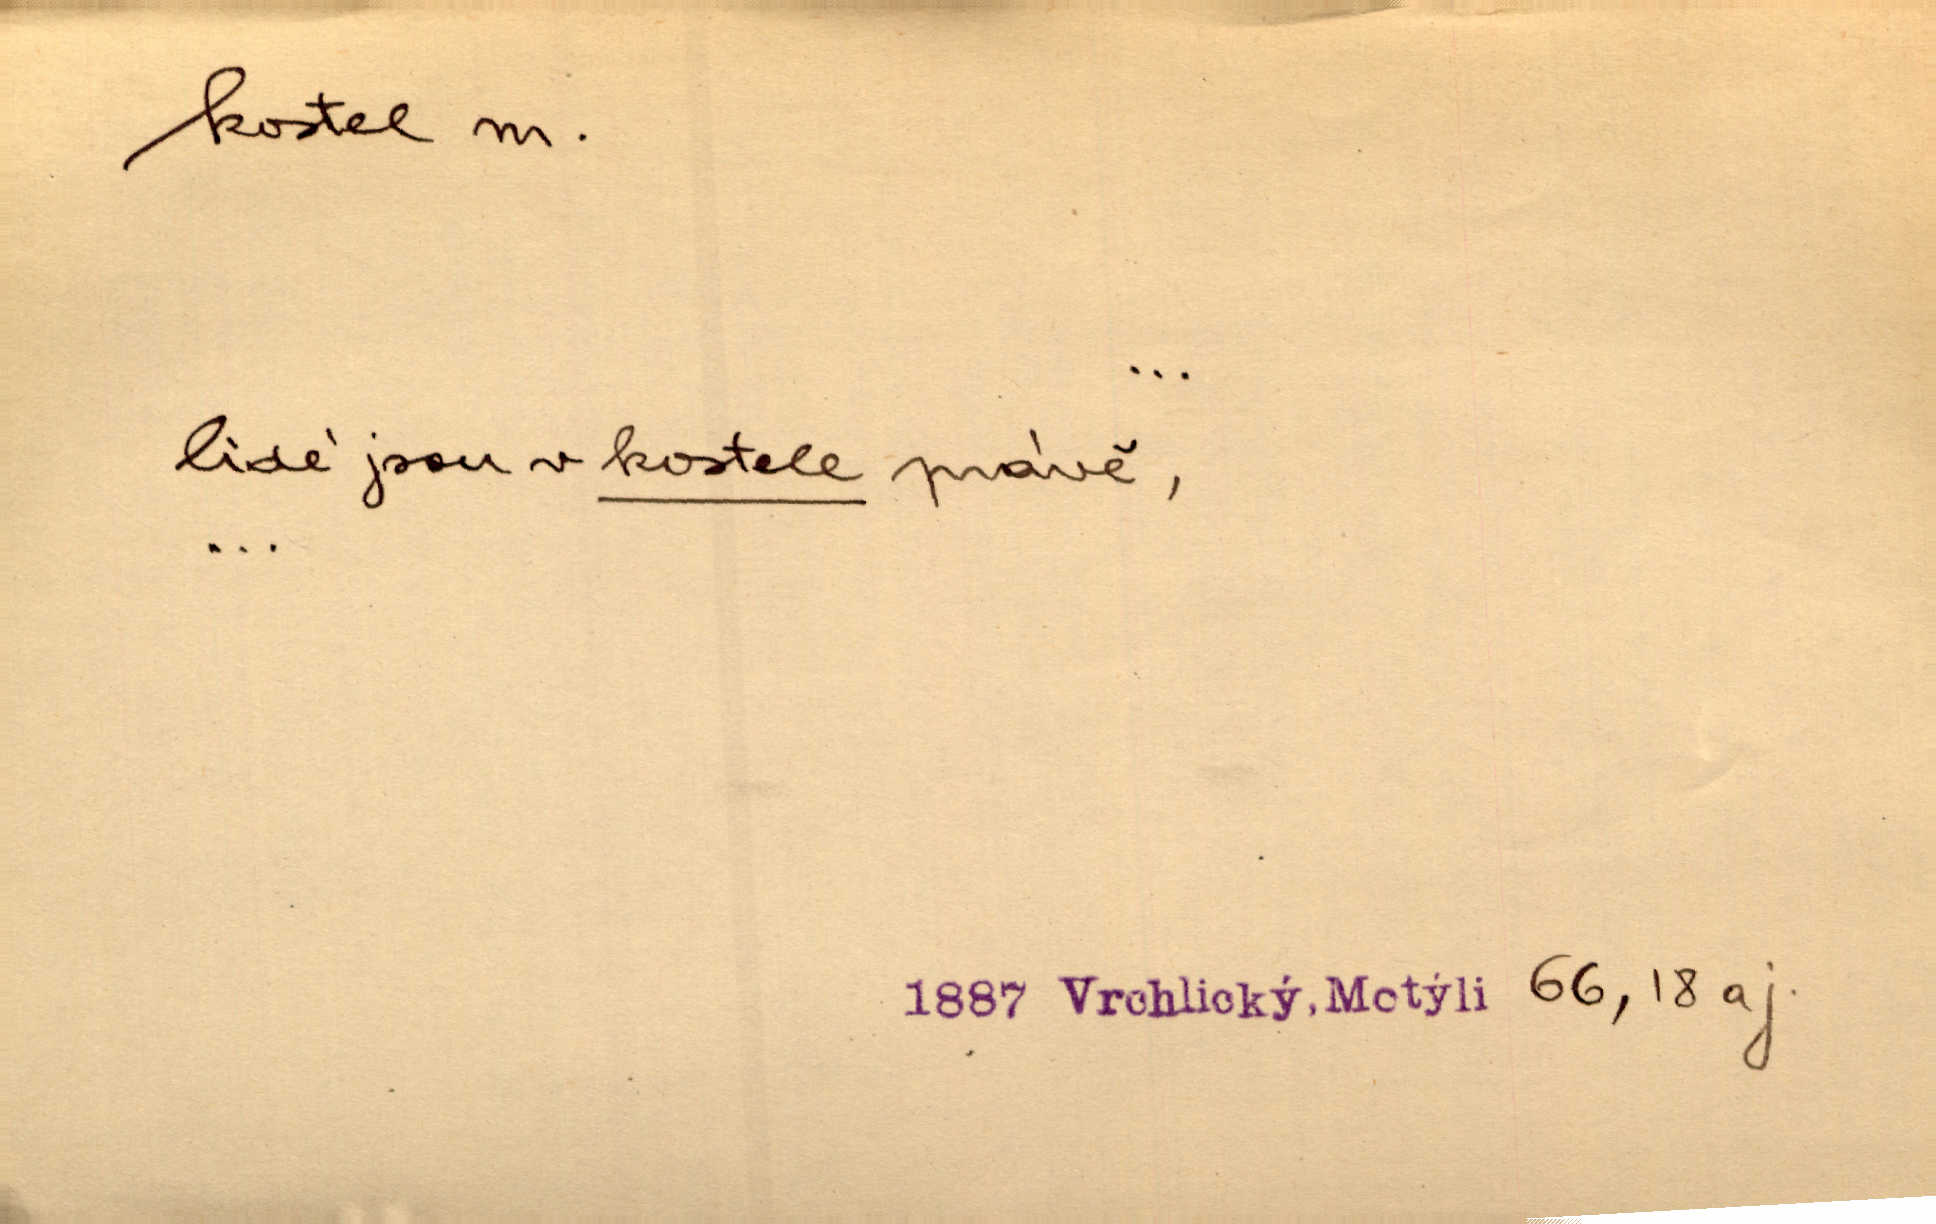 kostel m.
...
lidé jsou v kostele právě,
...
1887 Vrchlický, Motýli 66, 18 aj.